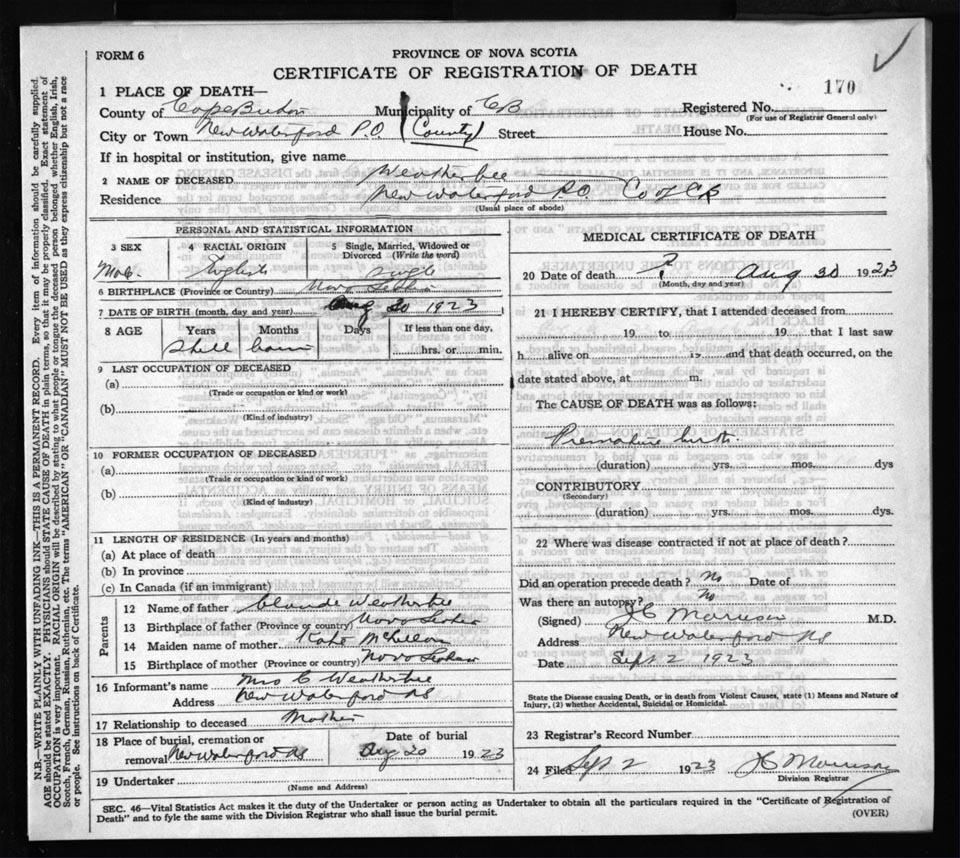 FORM 6
PROVINCE OF NOVA SCOTIA
CERTIFICATE OF REGISTRATION OF DEATH
170
1 PLACE OF DEATH—
County of Cape Breton Municipality of CB Registered No.
(For use of Registrar General only)
City or Town New Waterford P.O. (County) Street House No.
If in hospital or institution, give name
2 NAME OF DECEASED Weatherbee
Residence New Waterford P.O. Co of CB
(Usual place of abode)
PERSONAL AND STATISTICAL INFORMATION
3 SEX 4 RACIAL ORIGIN 5 Single, Married, Widowed or Divorced (Write the word)
Male English single
6 BIRTHPLACE (Province or Country) Nova Scotia
7 DATE OF BIRTH (month, day and year) Aug 20 1923
8 AGE Years Months Days If less than one day,
Still born hrs. or min.
9 LAST OCCUPATION OF DECEASED
(a)
(Trade or occupation or kind or work)
(b)
(Kind of industry)
10 FORMER OCCUPATION OF DECEASED
(a)
(Trade or occupation or kind or work)
(b)
(Kind of industry)
11 LENGTH OF RESIDENCE (In years and months)
(a) At place of death
(b) In province
(c) In Canada (if an immigrant)
Parents
12 Name of father Claude Weatherbee
13 Birthplace of father (Province or country) Nova Scotia
14 Maiden name of mother
15 Birthplace of mother (Province or country) Nova Scotia
16 Informant's name Mrs C Weatherbee
Address New Waterford NS
17 Relationship to deceased Mother
18 Place of burial, cremation or removal New Waterford NS Date of burial Aug 20 1923
19 Undertaker
(Name and Address)
MEDICAL CERTIFICATE OF DEATH
20 Date of death ? Aug 20 1923
(Month, day and year)
21 I HEREBY CERTIFY, that I attended deceased from
19 to 19 that I last saw
h alive on 19 and that death occurred, on the
date stated above, at m.
The CAUSE OF DEATH was as follows:
Premature birth.
(duration) yrs. mos. dys
CONTRIBUTORY
(Secondary)
(duration) yrs. mos. dys.
22 Where was disease contracted if not at place of death?
Did an operation precede death? No Date of
Was there an autopsy? No
(Signed) JC Morrison M.D.
Address New Waterford NS
Date Sept 2 1923
State the Disease causing Death, or in death from Violent Causes, state (1) Means and Nature of
Injury, (2) whether Accidental, Suicidal or Homicidal.
23 Registrar's Record Number
24 Filed Sept 2 1923 JC Morrison
Division Registrar
SEC. 46—Vital Statistics Act makes it the duty of the Undertaker or person acting as Undertaker to obtain all the particulars required in the "Certificate of Registration of
Death" and to fyle the same with the Division Registrar who shall issue the burial permit.
(OVER)
N.B.—WRITE PLAINLY WITH UNFADING INK—THIS IS A PERMANENT RECORD. Every item of information should be carefully supplied.
AGE should be stated EXACTLY. PHYSICIANS should STATE CAUSE OF DEATH in plain terms, so that it may be properly classified. Exact statement of
OCCUPATION is very important. RACIAL ORIGIN will be described by stating to what people or tongue the deceased person belonged whether English, Irish,
Scotch, French, German, Russian, Ruthenian, etc. The terms "AMERICAN" OR "CANADIAN" MUST NOT BE USED as they express citizenship but not a race
or people. See instructions on back of Certificate.